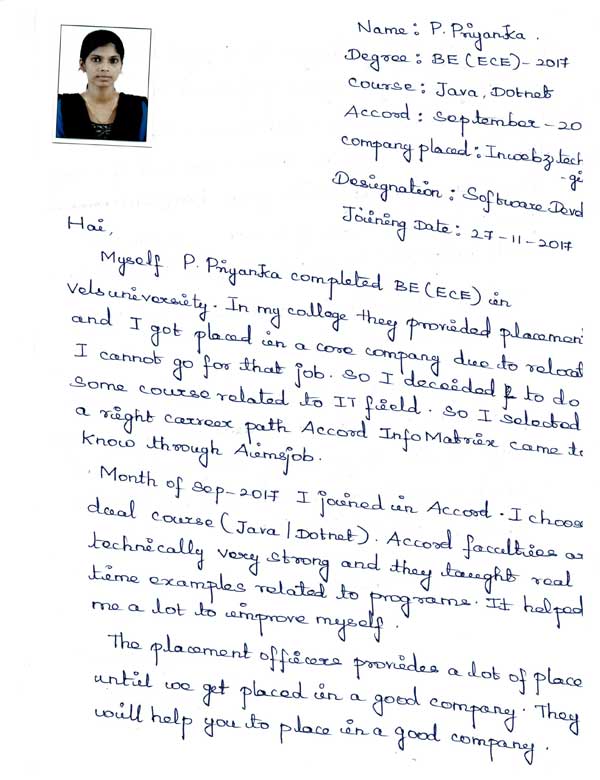 Name : P. Priyanka .
Degree : BE (ECE) - 2017
Course : Java, Dotnet
Accord : September - 20
company placed : Inwebz tech
- gi
Designation : Software Devd
Joining Date : 27-11-2017
Hai,
Myself P. Priyanka completed BE (ECE) in
Vels university. In my college they provided placemen
and I got placed in a core company due to relocat
I cannot go for that job. So I deceided to do
some course related to IT field. So I selected
a right carreer path Accord InfoMatrix came to
know through Aimsjob.
Month of Sep-2017 I joined in Accord. I choos
dual course (Java | Dotnet). Accord faculties ar
technically very strong and they taught real
time examples related to programs. It helped
me a lot to improve myself.
The placement officers provides a lot of place
until we get placed in a good company. They
will help you to place in a good company.